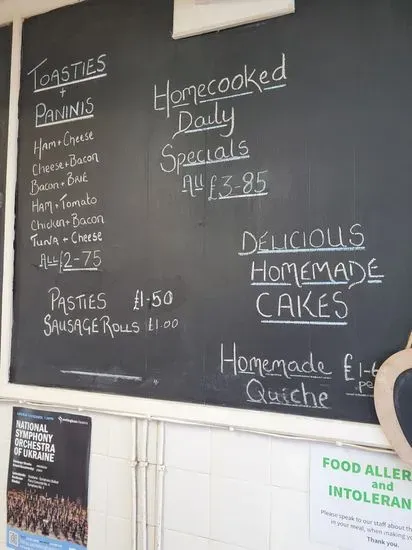 TOASTIES
+
PANINIS
Ham + Cheese
Cheese + Bacon
Bacon + Brie
Ham + Tomato
Chicken + Bacon
Tuna + Cheese
ALL £2-75
PASTIES £1-50
SAUSAGE ROLLS £1.00
Homecooked
Daily
Specials
All £3-85
DELICIOUS
HOMEMADE
CAKES
Homemade £1-6
Quiche pe
NATIONAL
SYMPHONY
ORCHESTRA
OF UKRAINE
FOOD ALLER
and
INTOLERAN
Please speak to our staff about th
in your meal, when making yo
Thank you.